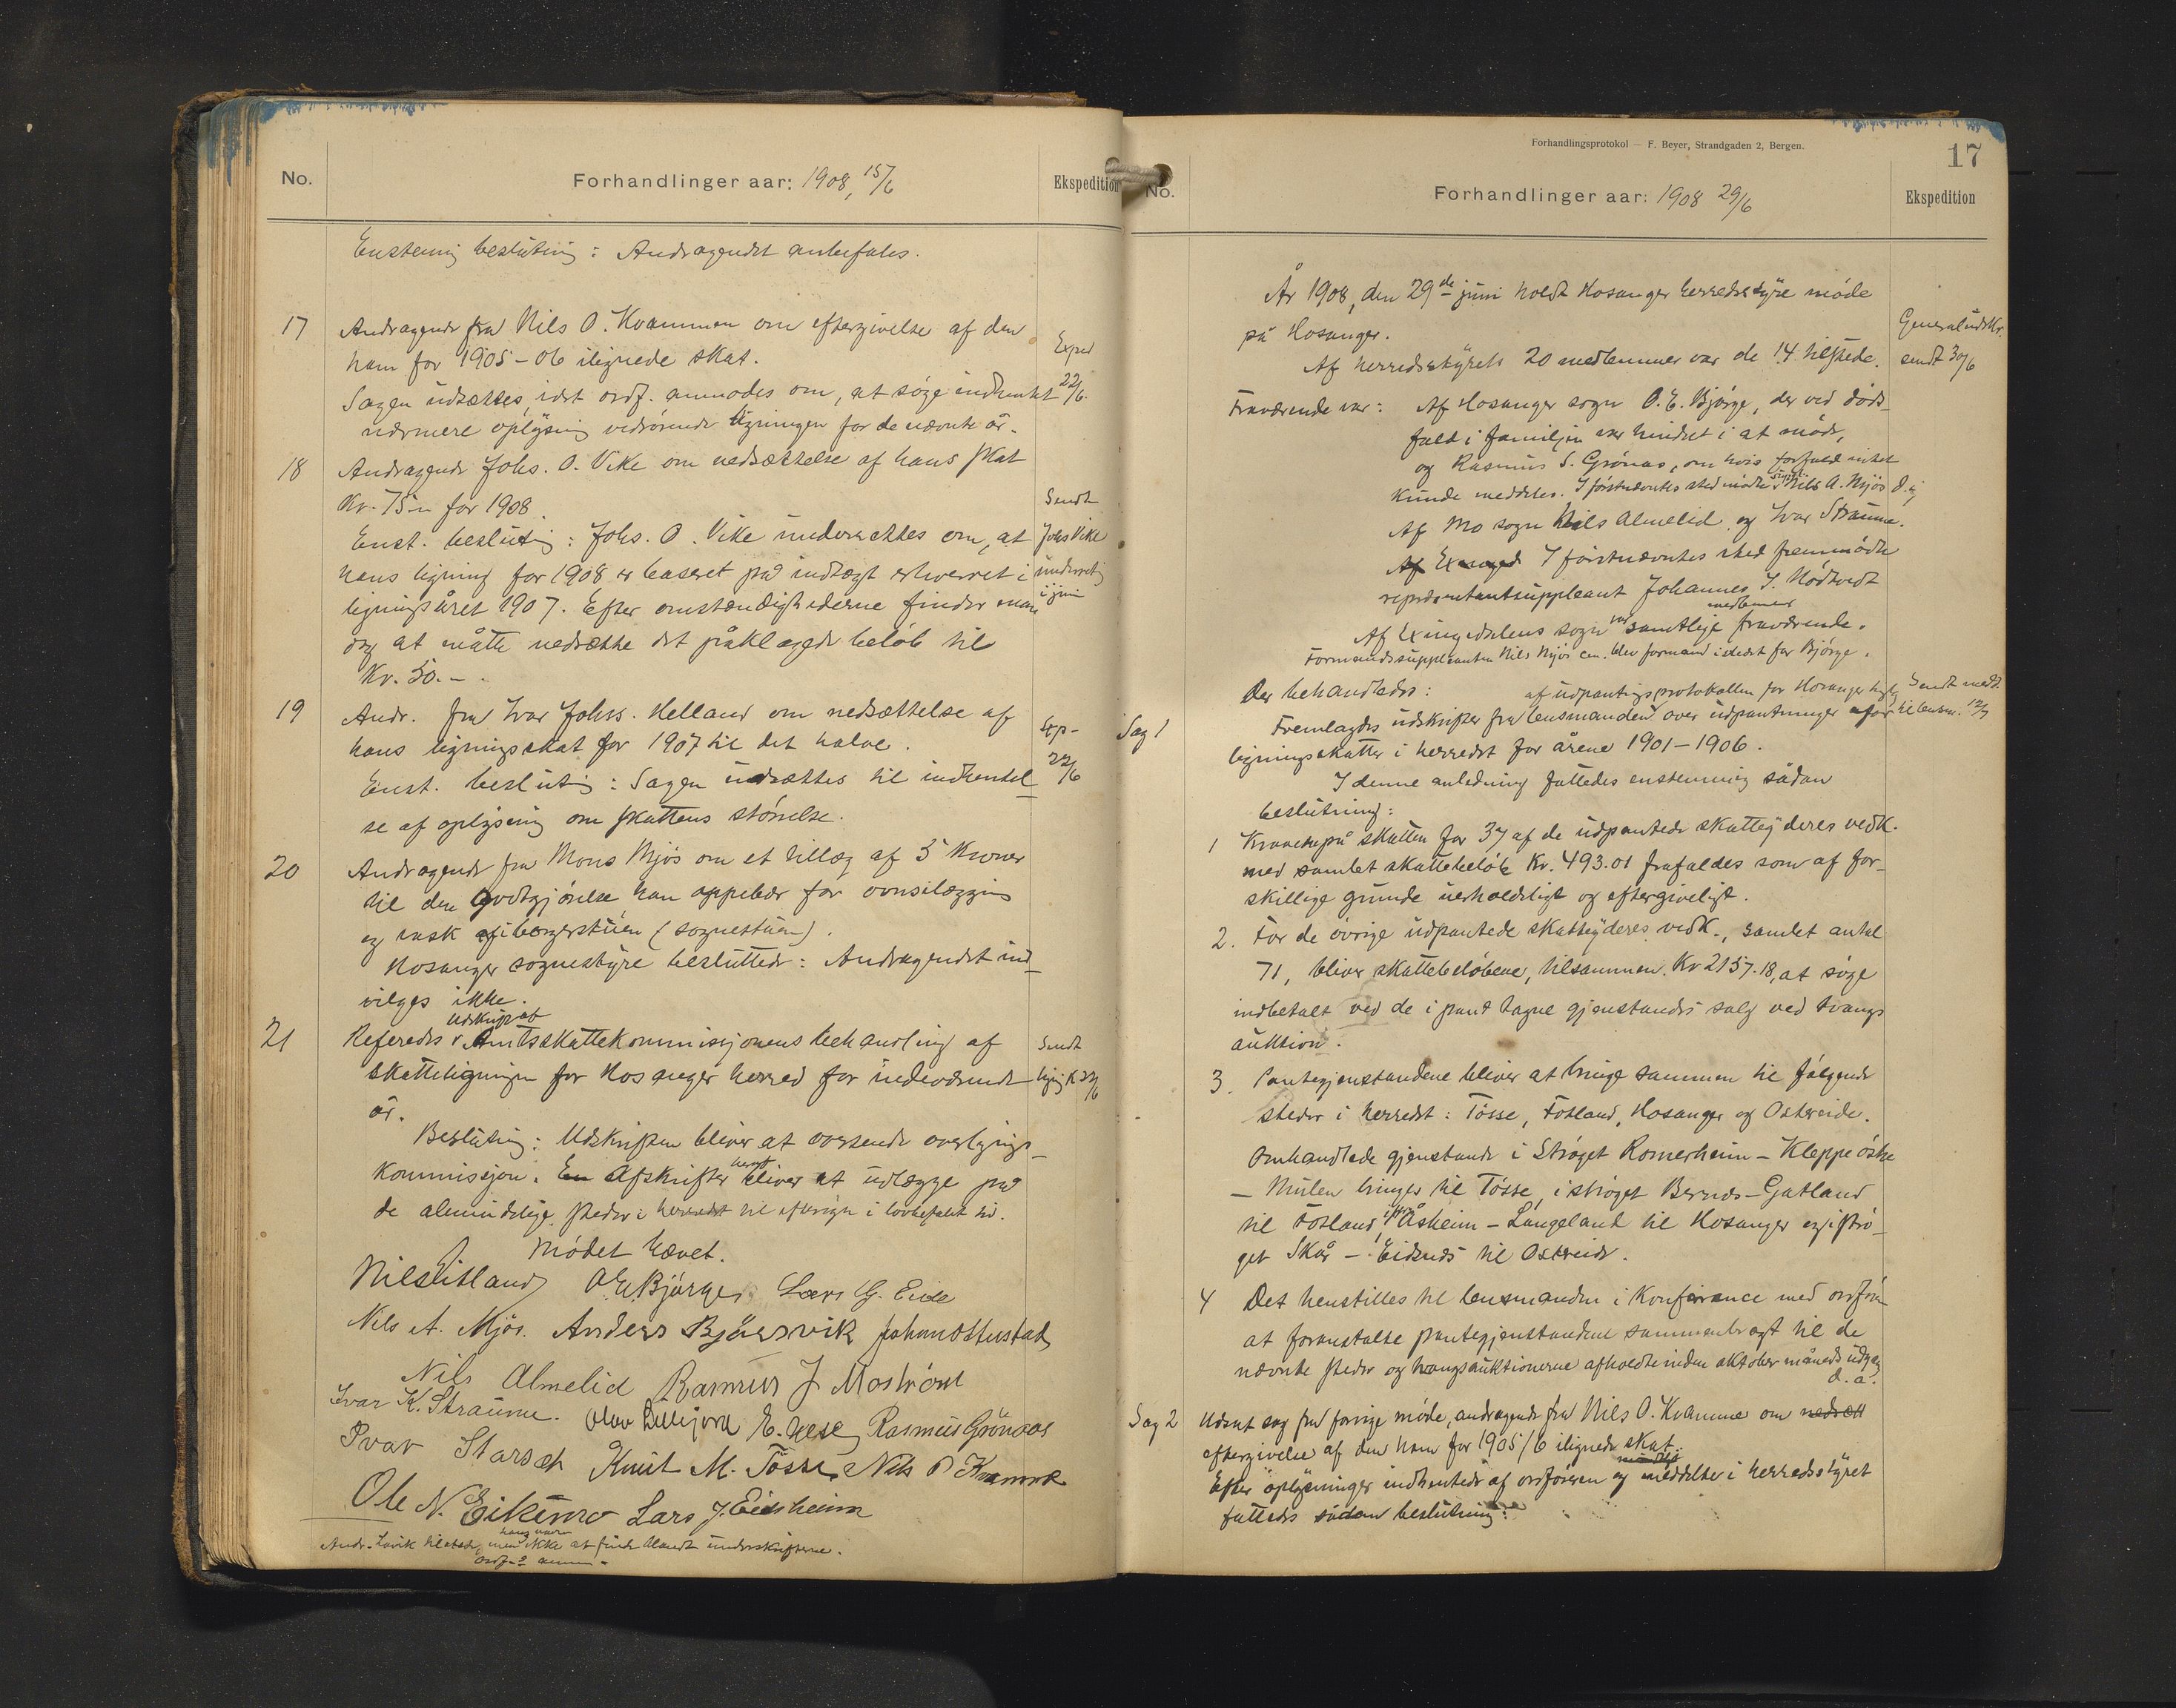 No.
Forhandlinger aar: 1908, 15/6
Ekspedition
Enstemig beslutning: Andragendet anbefales.
17 Andragende fra Nils O. Kvammen om eftergivelse af den
ham for 1905–06 ilignede skat.
Exped 22/6.
Sagen udsættes, idet ordf. anmodes om, at søge indhentet
nærmere oplysning vedrørende ligningen for de nævnte år.
18 Andragende Johs. O. Vike om nedsættelse af hans skat
Kr. 75.– for 1908.
Enst. beslutnig: Johs. O. Vike underrettes om, at
hans ligning for 1908 er baseret på indtægt erhvervet i
ligningsåret 1907. Efter omstændighederne finder man
dog at måtte nedsætte det påklagede beløb til
Kr. 50.–.
Sendt
Johs Vike
underretnig
i juni
19 Andr. fra Ivar Johss. Helland om nedsættelse af
hans ligningsskat for 1907 til det halve.
Enst. beslutnig: Sagen udsættes til indhentel-
se af oplysning om skattens størrelse.
Exp.
22/6
20 Andragende fra Mons Mjøs om et tillæg af 5 kroner
til den godtgjørelse han oppebær for ovnsilægging
og vask af i borgerstuen (sognestuen).
Hosanger sognestyre besluttede: Andragendet ind-
vilges ikke.
21 Referedes udskrift af Amtsskattekommissjonens behandling af
skatteligningen for Hosanger herred for indeværende
år.
Sendt
lign.k. 22/6
Beslutnig: Udskriften bliver at oversende overlignings-
kommissjon. En Afskrifter heraf bliver at udlægge på
de almindelige steder i herredet til eftersyn i lovbefalet tid.
Mødet hævet.
Nils Litland O. E. Bjørge, Lars G. Eide
Nils A. Mjøs. Anders Bjørsvik Johan Hustad
Nils Almelid Rasmus J. Mostrøm
Ivar K. Straume. Olav Lillejord E. Gese Rasmus Grønaas
Ivar Kn. M. Tøsse, Nils O Kvamme
Ole N. Eikemo Lars J. Eidsheim
Andr. tilstede, men ikke at finde blandt underskrifterne.
Forhandlingsprotokol – F. Beyer, Strandgaden 2, Bergen.
17
No.
Forhandlinger aar: 1908 29/6
Ekspedition
År 1908, den 29de juni holdt Hosanger herredsstyre møde
på Hosanger.
Generaludskr.
sendt 30/6
Af herredsstyrets 20 medlemmer var de 14 tilstede.
Fraværende var: Af Hosanger sogn O. E. Bjørge, der ved døds-
fald i familjen var hindret i at møde,
og Rasmus S. Grønås, om hvis forfald intet
kunde meddeles. I førstnævntes sted mødte suppl. Nils A. Mjøs
Af Mo sogn Nils Almelid og Ivar Straume.
I førstnævntes sted fremmødte
repræsentantsuppleant Johannes J. Nødtvedt
Af Exingedalens sogn var samtlige medlemmer fraværende.
Formandssuppleanten Nils Mjøs sen. blev formand istedet for Bjørge.
Der behandledes:
Sag 1 Fremlagdes udskrifter fra lensmanden af udpantingsprotokollen for Hosanger over udpantninger for
ligningsskatter i herredet for årene 1901–1906.
Sendt medd.
til lensm. 12/7
I denne anledning fattedes enstemmig sådan
beslutning:
1 Kravet på skatten for 37 af de udpantede skatteyderes vedk.
med samlet skattebeløb Kr. 493.01 frafaldes som af for-
skillige grunde uerholdeligt og eftergiveligt.
2. For de øvrige udpantede skatteyderes vedk., samlet antal
71, bliver skattebeløbene, tilsammen Kr 2157.18, at søge
indbetalt ved de i pant tagne gjenstandes salg ved tvangs
auktion.
3. Pantegjenstandene bliver at bringe sammen til følgende
steder i herredet: Tøsse, Fotland, Hosanger og Ostereide.
Omhandlede gjenstande i Strøget Romerheim – Kleppe østre
– Mulen bringes til Tøsse, i strøget Bernes–Gatland
til Fotland, i str. Åsheim – Langeland til Hosanger og i strø-
get Skår – Eidsnes til Ostereide.
4 Det henstilles til lensmanden i konferance med ordføreren
at foranstalte pantegjenstandene sammenbragt til de
nævnte steder og tvangsauktionerne afholdte inden oktober måneds udgang
d. a.
Sag 2 Udsat sag fra forrige møde, andragende fra Nils O. Kvamme om nedsætt
eftergivelse af den ham for 1905/6 ilignede skat.
Efter oplysninger indhentede af ordføreren og mundtlig meddelte i herredsstyret
fattedes sådan beslutning: